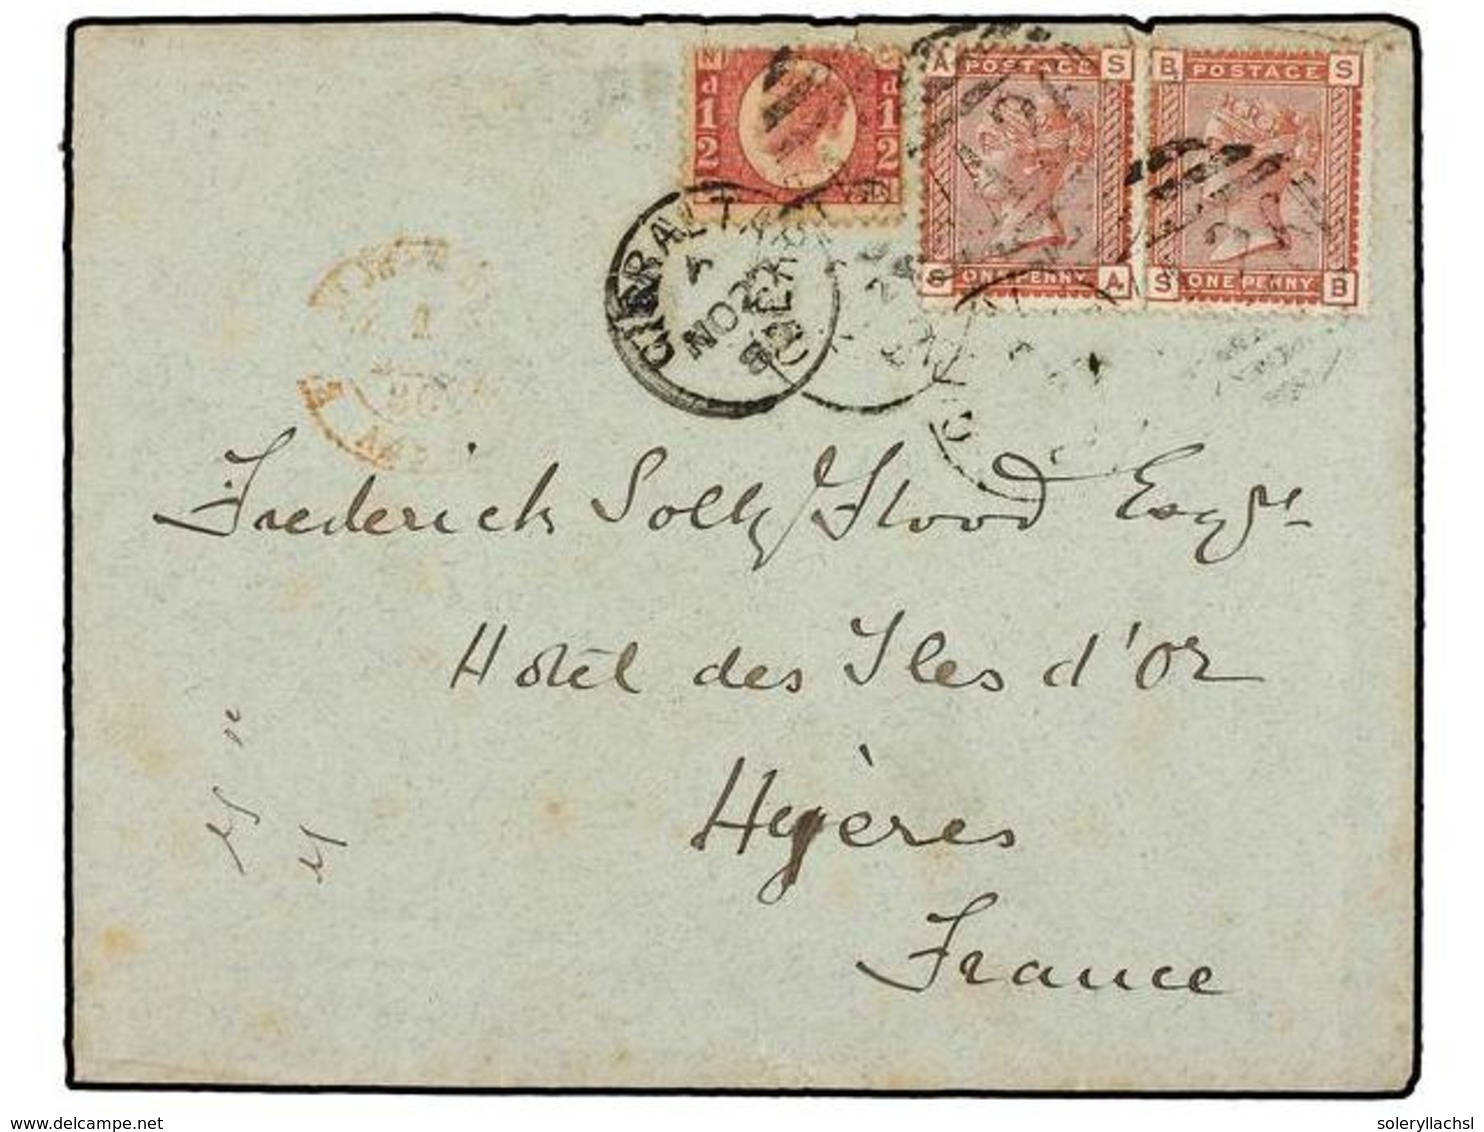 N
d 1/2
d 1/2
A POSTAGE S
S ONE PENNY A
B POSTAGE S
S ONE PENNY B
GIBRALTAR
A
NO 22
80
Frederick Solly/Flood Esqre
Hotel des Iles d'Or
Hyères
France
soleryllachsl